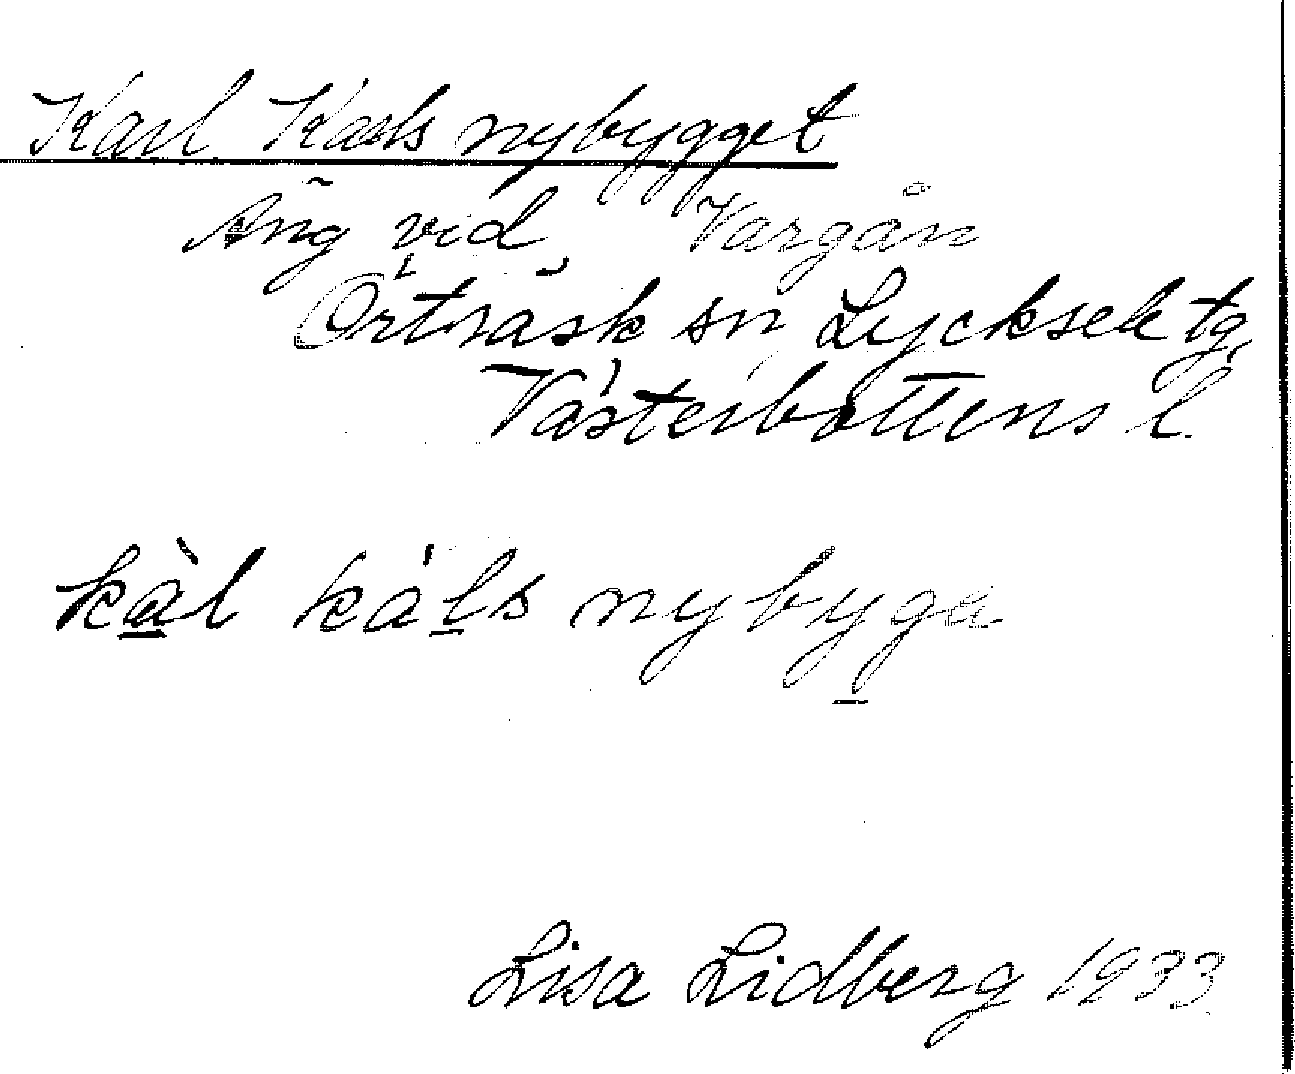 Karl Karls nybygget
Äng vid Vargån
Örträsk sn Lycksele tg.
Västerbottens l.
kàl káls nybyga
Lisa Lidberg 1933